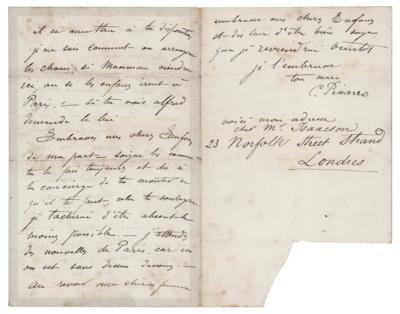 il se mettra à ta disposition
je ne sais comment on arrangera
les choses si Maman viendra
ici ou si les enfans iront à
Paris. — si tu vois alfred
demande le lui
Embrasses mes chers Enfans
de ma part. soigne les comme
tu le fais toujours et dis à
la concierge de te monter ce
qu'il te faut cela te soulagera
je tacherai d'être absent le
moins possible. — j'attends
des nouvelles de Paris, car ici
on est sans dessus dessous. —
au revoir ma chère femme
embrasse mes chers Enfans
et dis leur d'être bien sage
que je reviendrai bientôt
je t'embrasse
ton mari
C. Pissarro
voici mon adresse
chez Mr. Isaacson
23 Norfolk Street Strand
Londres